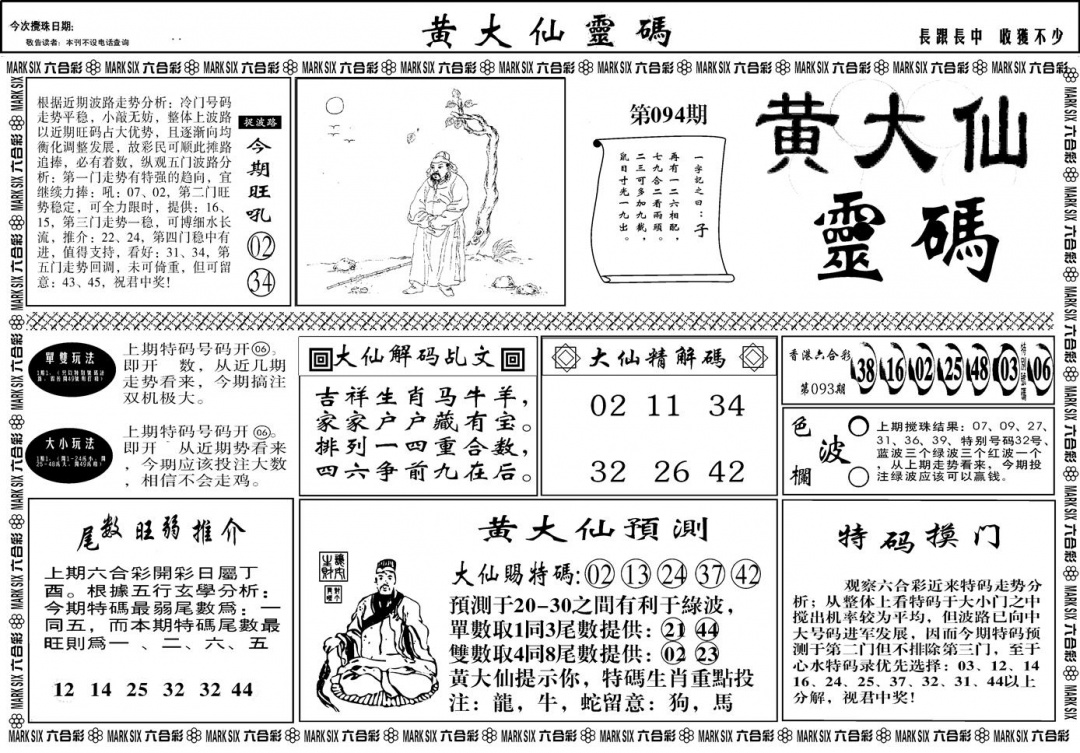 今次攪珠日期:
敬告读者：本刊不设电话查询
黄大仙靈碼
長跟長中 收獲不少
MARK SIX 六合彩 MARK SIX 六合彩 MARK SIX 六合彩 MARK SIX 六合彩 MARK SIX 六合彩 MARK SIX 六合彩 MARK SIX 六合彩 MARK SIX 六合彩 MARK SIX 六合彩 MARK SIX 六合彩 MARK SIX 六合彩
根据近期波路走势分析：冷门号码
走势平稳，小敲无妨，整体上波路
以近期旺码占大优势，且逐渐向均
衡化调整发展，故彩民可顺此摊路
追捧，必有着数，纵观五门波路分
析：第一门走势有特强的趋向，宜
继续力捧：吼：07、02，第二门旺
势稳定，可全力限时，提供：16、
15，第三门走势一稳，可博细水长
流，推介：22、24，第四门稳中有
进，值得支持，看好：31、34，第
五门走势回调，未可倚重，但可留
意：43、45，祝君中奖！
捉波路
今期旺吼
02
34
第094期
一字记之曰：子
再有一二六相配，
七九合二看两頭，
二三可多加九裁，
鼠目寸光一九出。
黄大仙
靈碼
單雙玩法
上期特码号码开06。
即开 数，从近几期
走势看来，今期搞注
双机极大。
大小玩法
上期特码号码开06。
即开 从近期势看来
，今期应该投注大数
，相信不会走鸡。
大仙解码乩文
吉祥生肖马牛羊，
家家户户藏有宝。
排列一四重合数，
四六争前九在后。
大仙精解碼
02 11 34
32 26 42
香港六合彩
第093期
38 16 02 25 48 03 特別號碼 06
色波欄
上期搅珠结果：07、09、27、
31、36、39、特别号码32号、
蓝波三个绿波三个红波一个
，从上期走势看来，今期投
注绿波应该可以赢钱。
尾数旺弱推介
上期六合彩開彩日屬丁
酉。根據五行玄學分析：
今期特碼最弱尾數爲：一
同五，而本期特碼尾數最
旺則爲一 、二、六、五
12 14 25 32 32 44
黄大仙預測
大仙賜特碼:02 13 24 37 42
預測于20-30之間有利于綠波，
單數取1同3尾數提供：21 44
雙數取4同8尾數提供：02 23
黄大仙提示你，特碼生肖重點投
注：龍，牛，蛇留意：狗，馬
特码摸门
观察六合彩近来特码走势分
析；从整体上看特码于大小门之中
搅出机率较为平均，但波路已向中
大号码进军发展，因而今期特码预
测于第二门但不排除第三门，至于
心水特码录优先选择：03、12、14
16、24、25、37、32、31、44以上
分解，视君中奖！
MARK SIX 六合彩 MARK SIX 六合彩 MARK SIX 六合彩 MARK SIX 六合彩 MARK SIX 六合彩 MARK SIX 六合彩 MARK SIX 六合彩 MARK SIX 六合彩 MARK SIX 六合彩 MARK SIX 六合彩 MARK SIX 六合彩